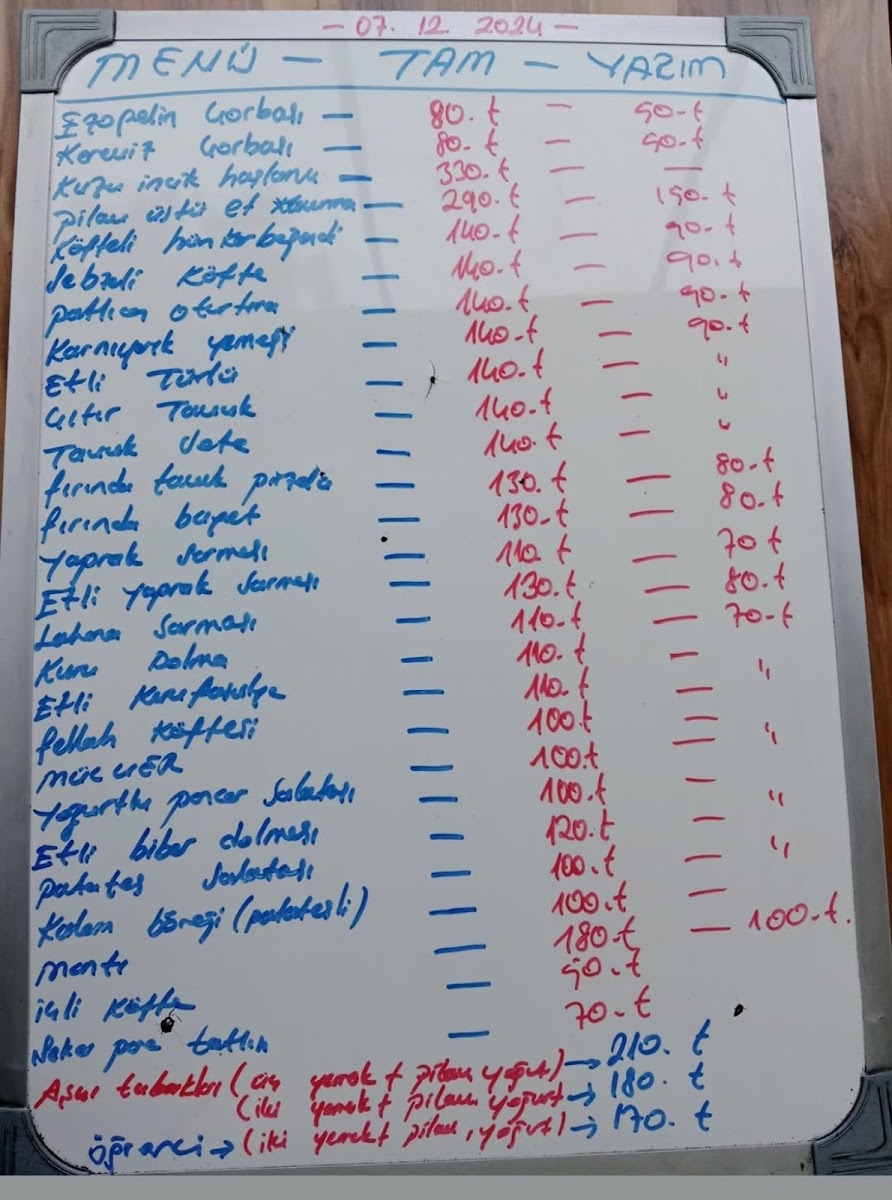 - 07. 12. 2024 -
MENÜ - TAM - YARIM
Ezogelin Çorbası - 80.t - 50.t
Kereviz Çorbası - 80.t - 50.t
Kuzu incik haşlama - 330.t -
pilav üstü et kavurma - 290.t - 150.t
Köfteli hünkarbeğendi - 140.t - 90.t
Sebzeli Köfte - 140.t - 90.t
patlıcan oturtma - 140.t - 90.t
Karnıyarık yemeği - 140.t - 90.t
Etli Türlü - 140.t - "
Çıtır Tavuk - 140.t - "
Tavuk sote - 140.t - "
fırında tavuk pirzola - 130.t - 80.t
fırında baget - 130.t - 80.t
Yaprak sarması - 110.t - 70 t
Etli yaprak sarması - 130.t - 80.t
Lahana sarması - 110.t - 70.t
Kuru Dolma - 110.t - "
Etli Kurufasulye - 110.t -
fellah köftesi - 100.t - "
MÜCVER - 100.t -
Yoğurtlu pancar salatası - 100.t - "
Etli biber dolması - 120.t - "
patates salatası - 100.t -
Kalem böreği (patatesli) - 100.t
mantı - 180.t - 100.t.
içli köfte - 90.t
şeker pare tatlısı - 70.t
(üç yemek + pilav yoğurt) → 210. t
(iki yemek + pilav yoğurt → 180. t
öğrenci → (iki yemek + pilav, yoğurt) → 170. t